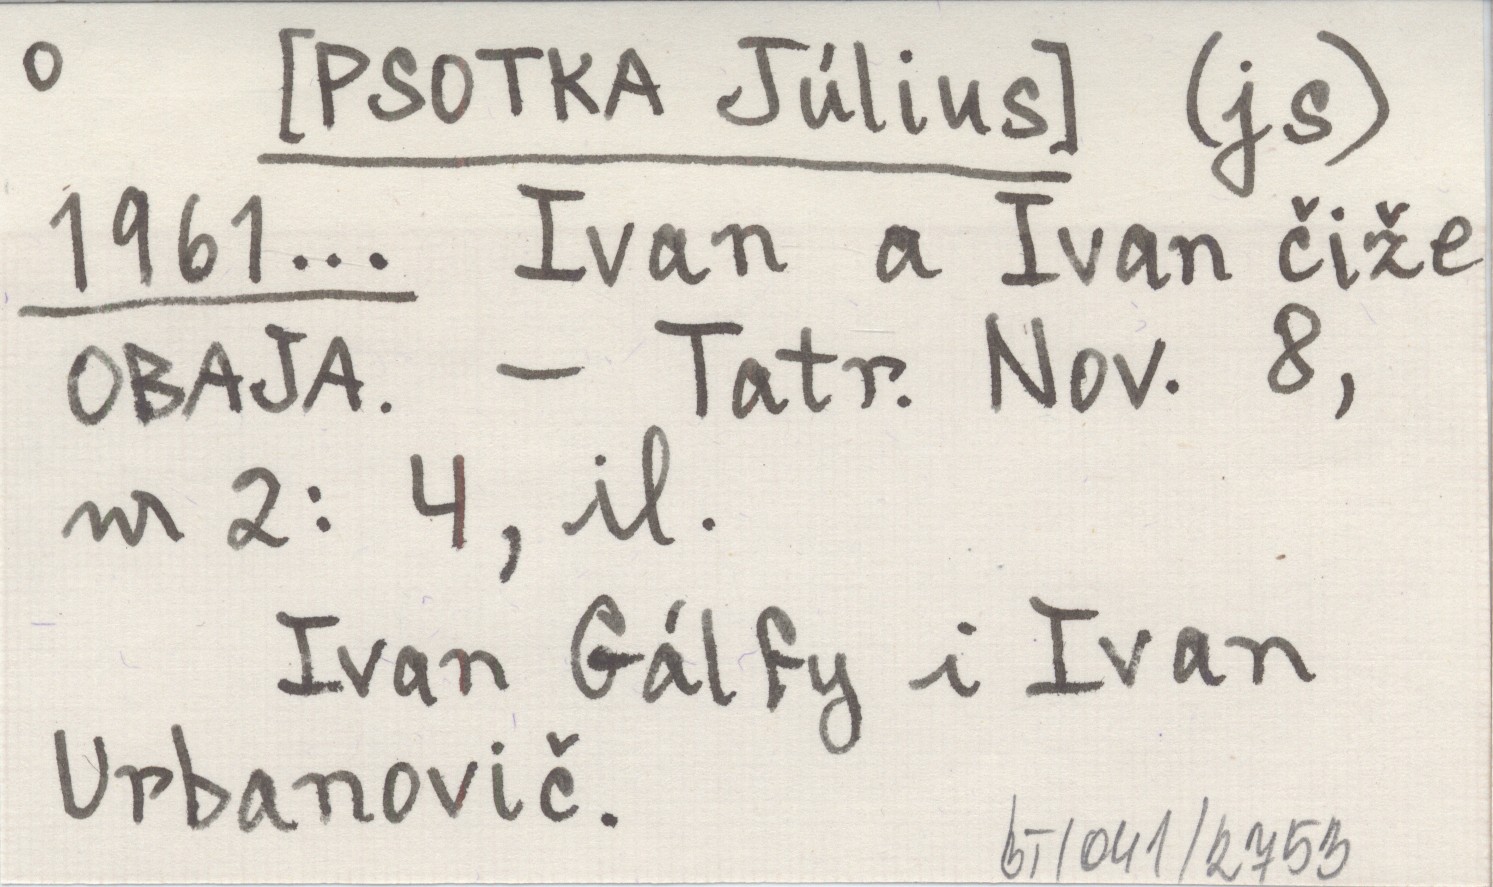 o [PSOTKA Július] (js)
1961... Ivan a Ivan čiže
OBAJA. – Tatr. Nov. 8,
nr 2: 4, il.
Ivan Gálfy i Ivan
Urbanovič.
bT/041/2753